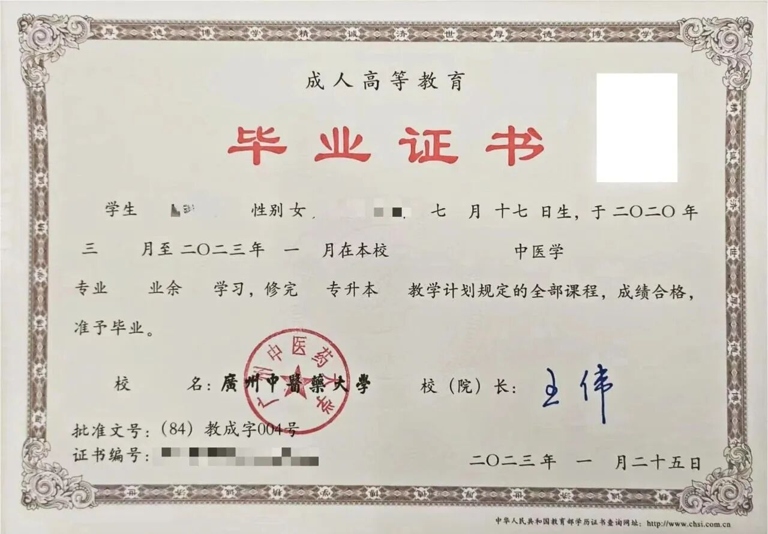 厚德博学精诚济世厚德博学
成人高等教育
毕业证书
学生 性别 女 七 月 十七 日生，于 二〇二〇 年
三 月至 二〇二三 年 一 月在本校 中医学
专业 业余 学习，修完 专升本 教学计划规定的全部课程，成绩合格，
准予毕业。
广州中医药大学
校 名：廣州中醫藥大學 校（院）长：王伟
批准文号：（84）教成字004号
证书编号：
二〇二三年 一 月二十五日
中华人民共和国教育部学历证书查询网址：http://www.chsi.com.cn